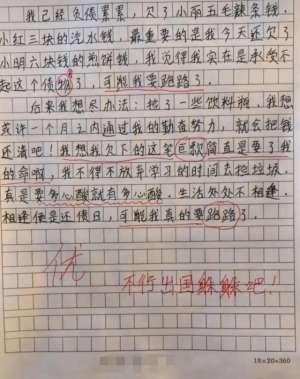 我已经负债累累,欠了小丽五毛辣条钱,
小红三块的汽水钱,最重要的是我今天还欠了
小明六块钱的煎饼钱,我觉得我实在是承受不
起这个债物了,可能我要跑路了。
后来我想尽办法:捡了一些饮料瓶,我想
或许一个月之内通过我的勤奋努力,就会把钱
还清吧!我想我欠下的这笔巨款简直是要了我
的命啊,我不得不放弃学习的时间去捡垃圾,
真是要多心酸就有多心酸。生活处处不相逢,
相逢便是还债日,可能我真的要跑路了。
优
不行出国躲躲吧!
18×20=360